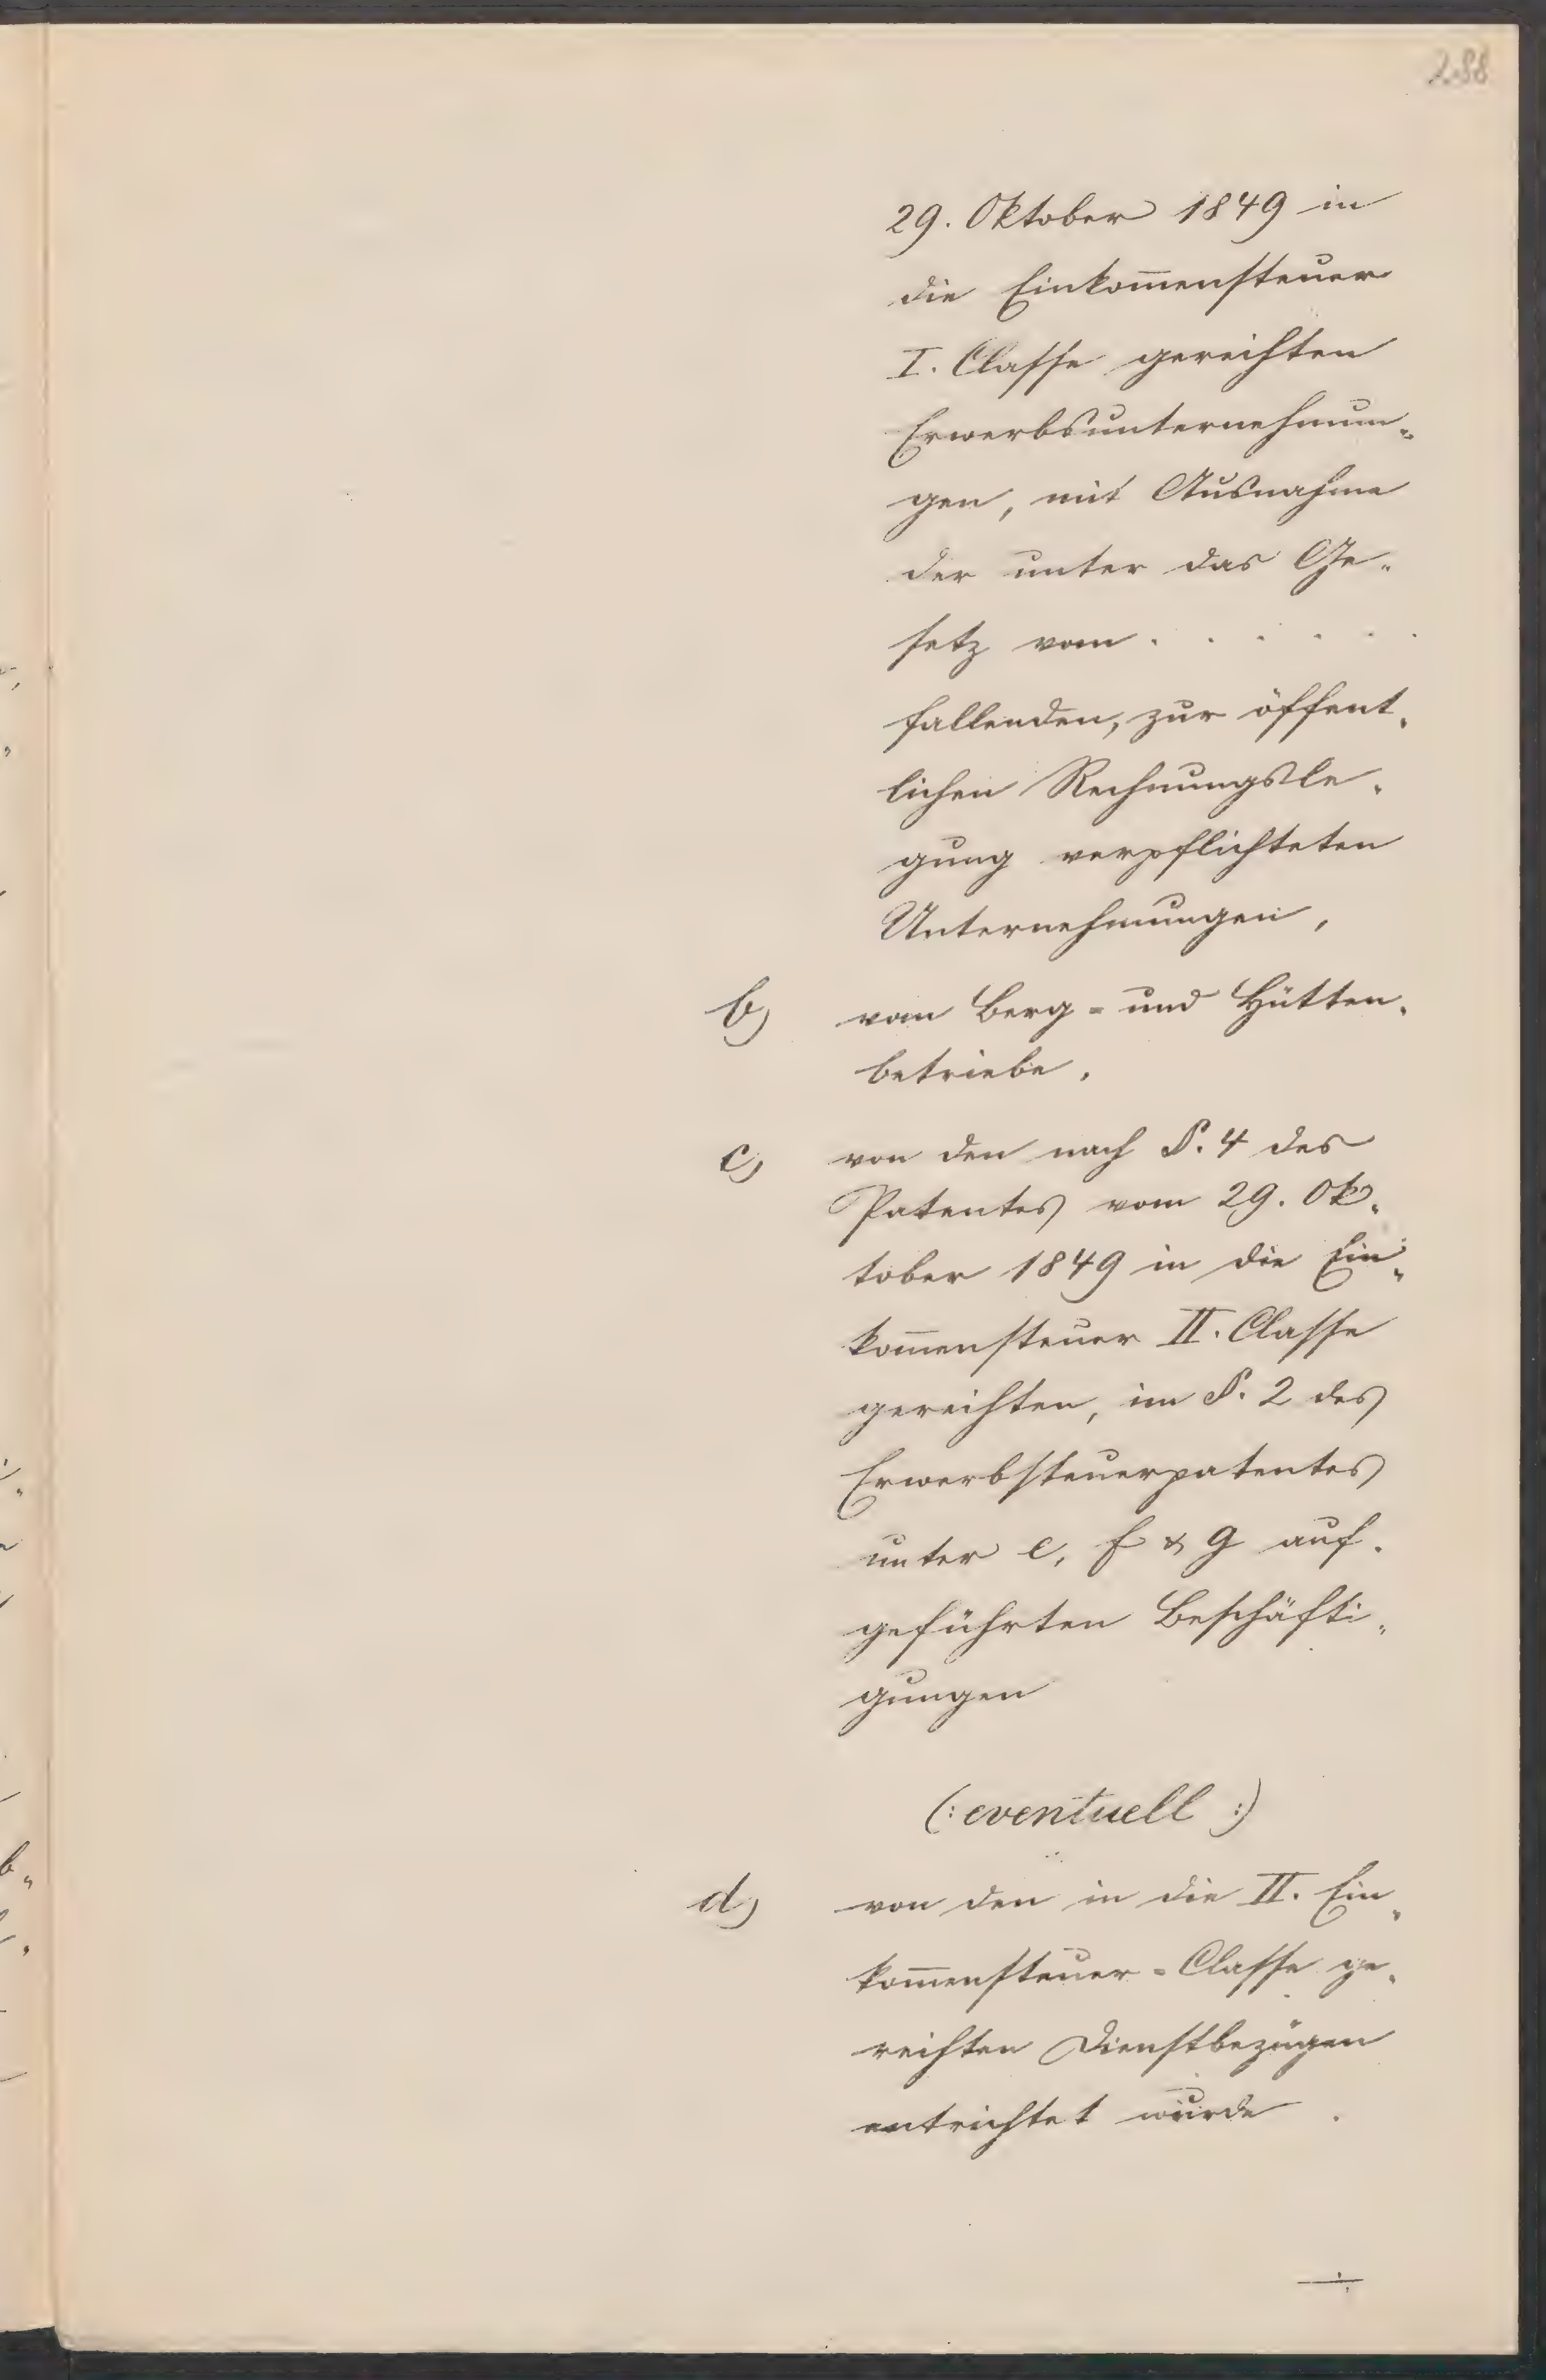 288
29. Oktober 1849 in
die Einkom̅ensteuer
I. Classe gereihten
Erwerbsunternehmun„
gen, mit Ausnahme
der unter das Ge„
setz vom . . . . . .
fallenden, zur öffent„
lichen Rechnungsle„
gung verpflichteten
Unternehmungen,
b) vom Berg= und Hütten„
betriebe,
c) von den nach §. 4 des
Patentes vom 29. Ok„
tober 1849 in die Ein„
kom̅ensteuer II. Classe
gereihten, im §. 2 des
Erwerbsteuerpatentes
unter e, f & g auf„
geführten Beschäfti„
gungen
(: eventuell :)
d) von den in die II. Ein„
kom̅ensteuer=Classe ge„
reihten Dienstbezügen
entrichtet würde.